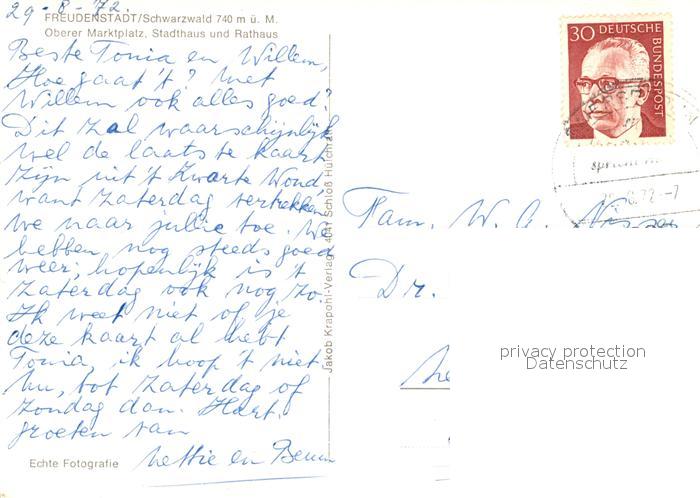 29-8-72.
FREUDENSTADT/Schwarzwald 740 m ü. M.
Oberer Marktplatz, Stadthaus und Rathaus
Beste Tonia en Willem,
Hoe gaat 't? Met
Willem ook alles goed?
Dit zal waarschijnlijk
wel de laatste kaart
zijn uit 't Zwarte Woud,
want Zaterdag vertrekken
we naar jullie toe. We
hebben nog steeds goed
weer; hopenlijk is 't
Zaterdag ook nog zo.
Ik weet niet of je
deze kaart al hebt
Tonia, ik hoop 't niet
Nu, tot Zaterdag of
Zondag dan. Hart.
groeten van
Nettie en
Echte Fotografie
Jakob Krapohl-Verlag, 4041 Schloß
30 DEUTSCHE
BUNDESPOST
8.72.-7
Fam. W. A.
Dr.
privacy protection
Datenschutz